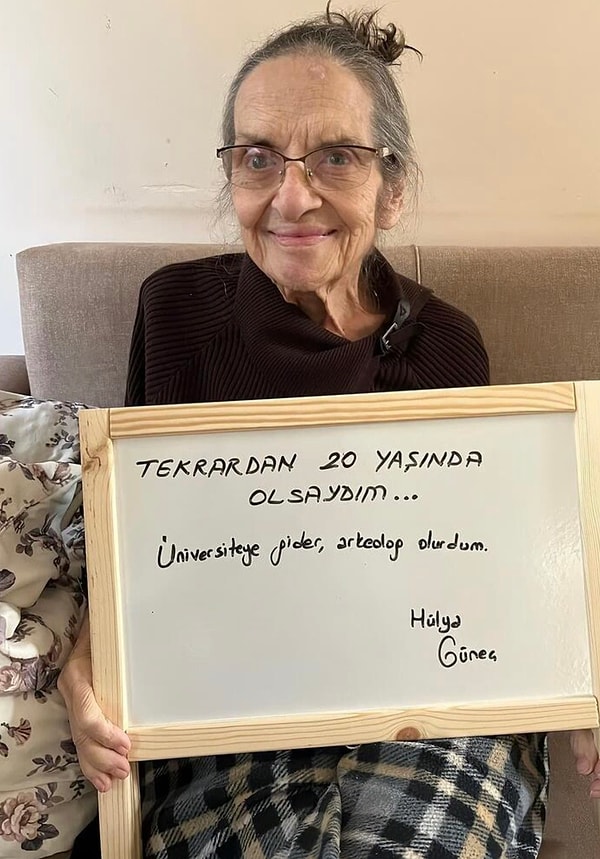 TEKRARDAN 20 YAŞINDA
OLSAYDIM...
Üniversiteye gider, arkeolog olurdum.
Hülya
Güneş